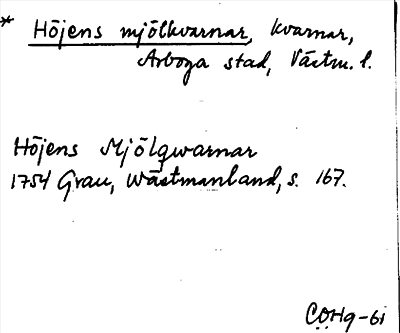 * Höjens mjölkvarnar, kvarnar,
Arboga stad, Västm. l.
Höjens Mjölqwarnar
1754 Grau, Wästmanland, s. 167.
COHq-61